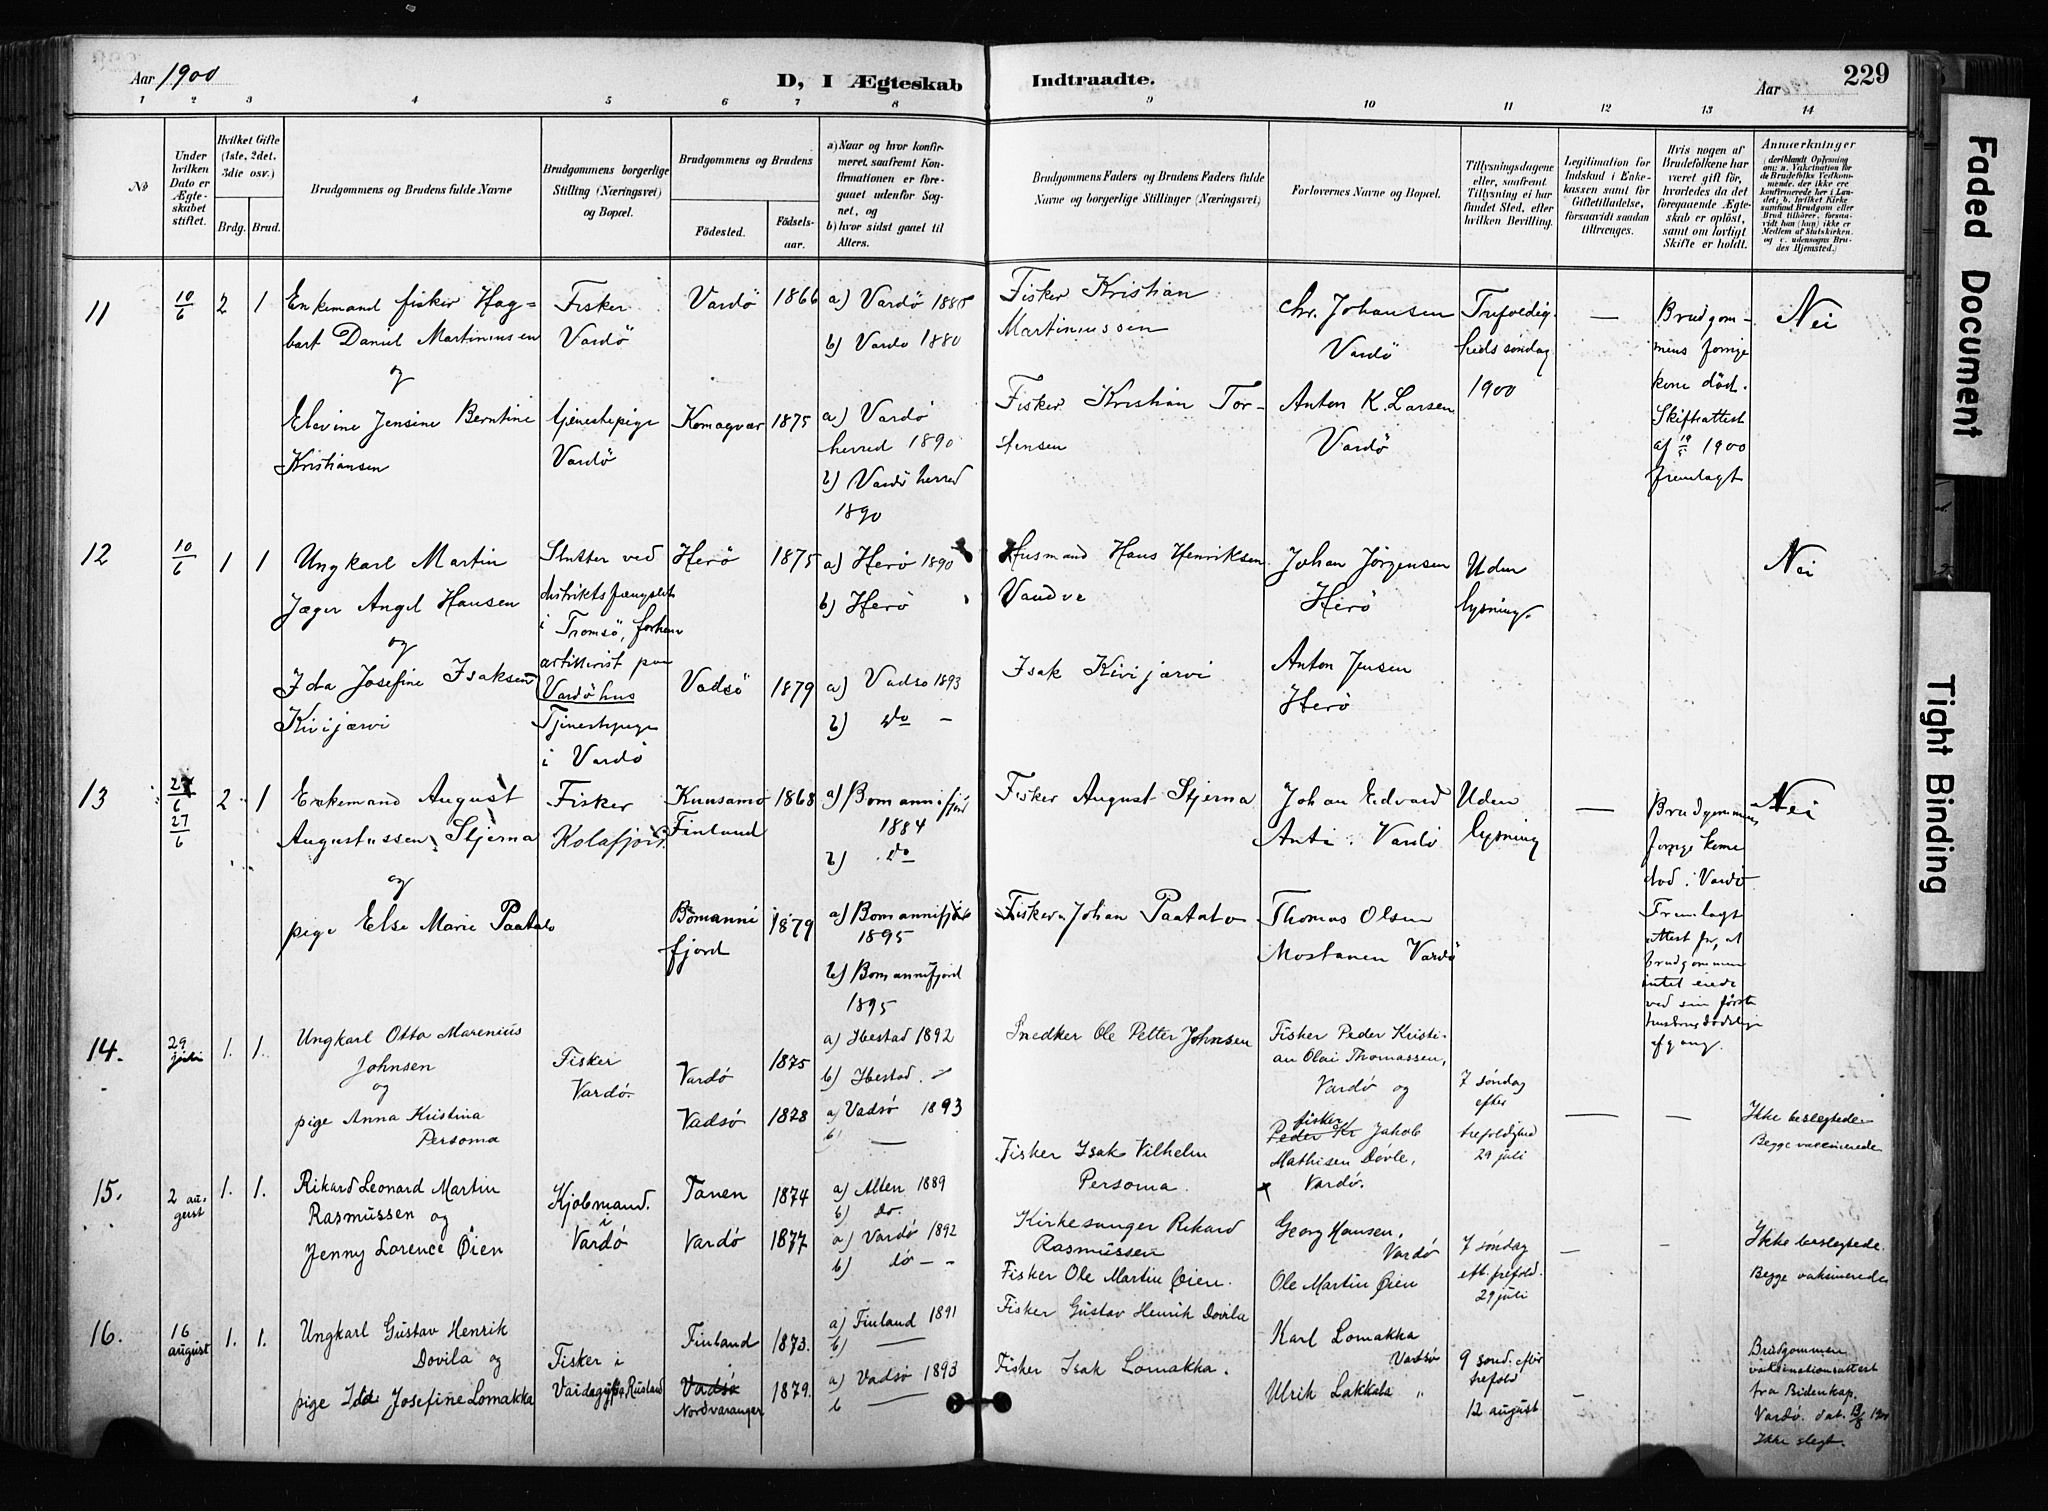 Aar 1900
D, I Ægteskab Indtraadte.
Aar
229
1 2 3 4 5 6 7 8 9 10 11 12 13 14
No
Under hvilken Dato er Ægteskabet stiftet.
Hvilket Gifte (1ste, 2det, 3die osv.)
Brdg. Brud.
Brudgommens og Brudens fulde Navne
Brudgommens borgerlige Stilling (Næringsvei) og Bopæl.
Brudgommens og Brudens
Fødested.
Fødsels-aar.
a) Naar og hvor konfirmeret, saafremt Konfirmationen er foregaaet udenfor Sognet, og
b) hvor sidst gaaet til Alters.
Brudgommens Faders og Brudens Faders fulde Navne og borgerlige Stillinger (Næringsvei)
Forlovernes Navne og Bopæl.
Tillysningsdagene eller, saafremt Tillysning ei har fundet Sted, efter hvilken Bevilling.
Legitimation for Indskud i Enkekassen samt for Giftetilladelse, forsaavidt saadan tiltrænges.
Hvis nogen af Brudefolkene har været gift før, hvorledes da det foregaaende Ægteskab er opløst, samt om lovligt Skifte er holdt.
Anmærkninger
(deriblandt Oplysning om: a. Vakcination for de Brudefolks Vedkommende, der ikke ere konfirmerede her i Landet; b. hvilket Kirkesamfund Brudgom eller Brud tilhører, forsaavidt han (hun) ikke er Medlem af Statskirken, og c. udensogns Brudes Hjemsted.)
11
10/6
2 1
Enkemand fisker Hag=
bart Daniel Martinussen
og
Elevine Jensine Berntine
Kristiansen
Fisker
Vardö
tjenestepige
Vardö
Vardö 1866
Komagvær 1875
a) Vardö 1880
b) Vardö 1880
a) Vardö
herred 1890
b) Vardö herred
1890
Fisker Kristian
Martinussen
Fisker Kristian Tor-
stensen
Chr. Johansen
Vardö
Anton K. Larsen
Vardö
Trefoldig-
heds söndag
1900
—
Brudgom-
mens forrige
kone död.
Skifteattest
af 19/5 1900
fremlagt
Nei
12
10/6
1 1
Ungkarl Martin
Jæger Angel Hansen
og
Ida Josefine Isaksen
Kivijærvi
Slutter ved
distriktsfængslet
i Tromsö, forhen
artillerist paa
Vardöhus
Tjenestepige
i Vardö
Herö 1875
Vadsö 1879
a) Herö 1890
b) Herö
a) Vadsö 1893
b) do -
Husmand Hans Henriksen
Vandve
Isak Kivijærvi
Johan Jörgensen
Herö
Anton Jensen
Herö
Uden
lysning.
Nei
13
27/6
27/6
2 1
Enkemand August
Augustussen Stjerna
og
pige Else Marie Paatalo
Fisker
Kolafjord.
Kuusamo
Finland
1868
Bomanni
fjord
1879
a) Bomannifjord
1884
b) do
a) Bomannifjord
1895
b) Bomannifjord
1895
Fisker August Stjerna
Fisker Johan Paatalo
Johan Edvard
Anti. Vardö
Thomas Olsen
Mostanen Vardö
Uden
lysning
—
Brudgommens
forrige kone
död i Vardö
Fremlagt
attest for, at
brudgommen
intet eiede
ved sin första
hustrus dödelige
afgang.
Nei
14.
29
juli
1. 1.
Ungkarl Otto Marenius
Johnsen
og
pige Anna Kristina
Persoma
Fisker
Vardö.
Vardö 1875
Vadsö 1878
a) Ibestad 1892
b) Ibestad.
a) Vadsö 1893
b) —
Snedker Ole Petter Johnsen
Fisker Isak Vilhelm
Persoma
Fisker Peder Kristi-
an Olai Thomassen,
Vardö og
fisker
Peder Kr Jakob
Mathisen Dövle,
Vardö.
7 söndag
efter
trefoldighed
29 juli
— —
Ikke beslegtede
Begge vaksinerede
15.
2 au-
gust
1. 1.
Rikard Leonard Martin
Rasmussen og
Jenny Lorence Öien
Kjöbmand.
i
Vardö
Tanen 1874
Vardö 1877
a) Alten 1889
b) do.
a) Vardö 1892
b) do - -
Kirkesanger Rikard
Rasmussen
Fisker Ole Martin Öien.
Georg Hansen,
Vardö
Ole Martin Öien
7 söndag
eft. trefold.
29 juli
— —
Ikke beslegtede.
Begge vaksinerede
16.
16
august
1. 1.
Ungkarl Gustav Henrik
Dovila og
pige Ida Josefine Lomakka
Fisker i
Vaidagub, Rusland
Finland 1873.
Vadsö
Nordvaranger
1879.
a) Finland 1891
b) —
a) Vadsö 1893
b —
Fisker Gustav Henrik Dovila
Fisker Isak Lomakka.
Karl Lomakka
Vardsö
Ulrik Lakkala "
9 sönd. efter
trefold
12 august
—
Brudgommen
vaksinationsattest
fra Bidenkap.
Vardö. dat. 13/8 1900
Ikke slegt.
Faded Document
Tight Binding